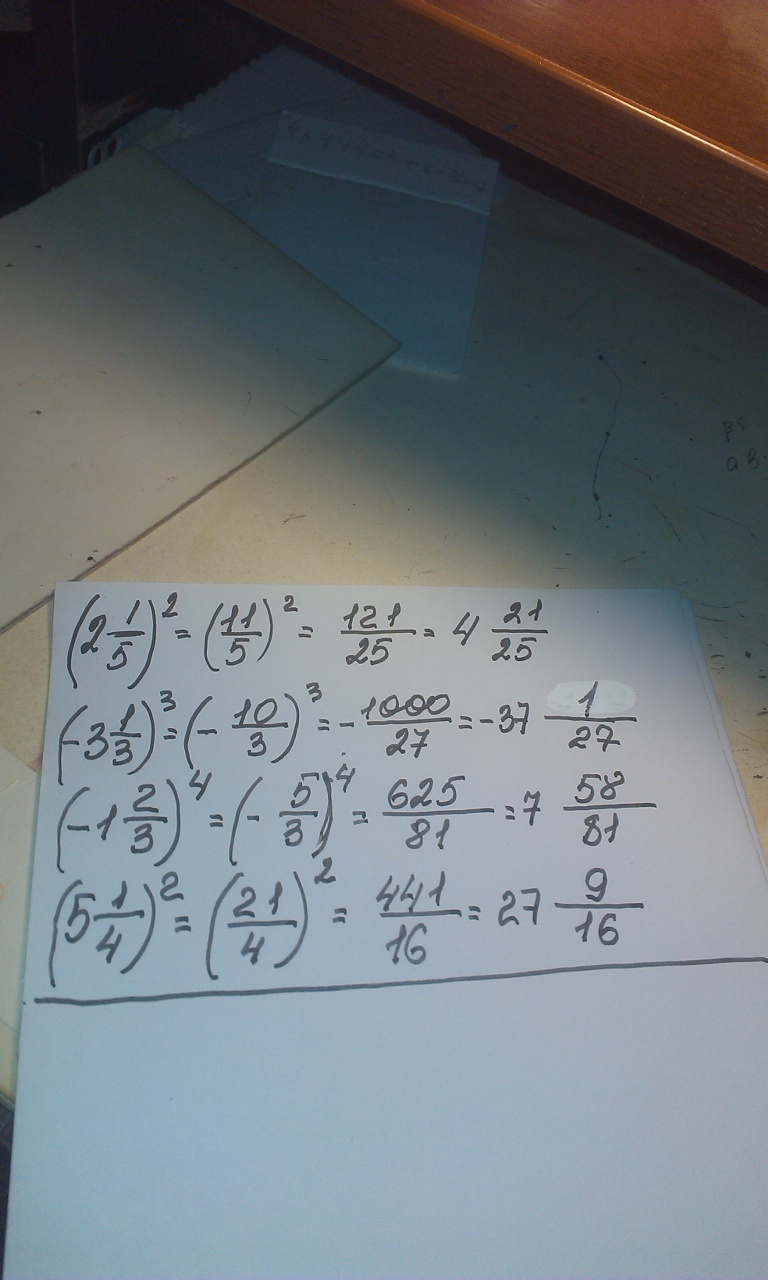 (2 1/5)² = (11/5)² = 121/25 = 4 21/25
(-3 1/3)³ = (- 10/3)³ = - 1000/27 = -37 1/27
(-1 2/3)⁴ = (- 5/3)⁴ = 625/81 = 7 58/81
(5 1/4)² = (21/4)² = 441/16 = 27 9/16